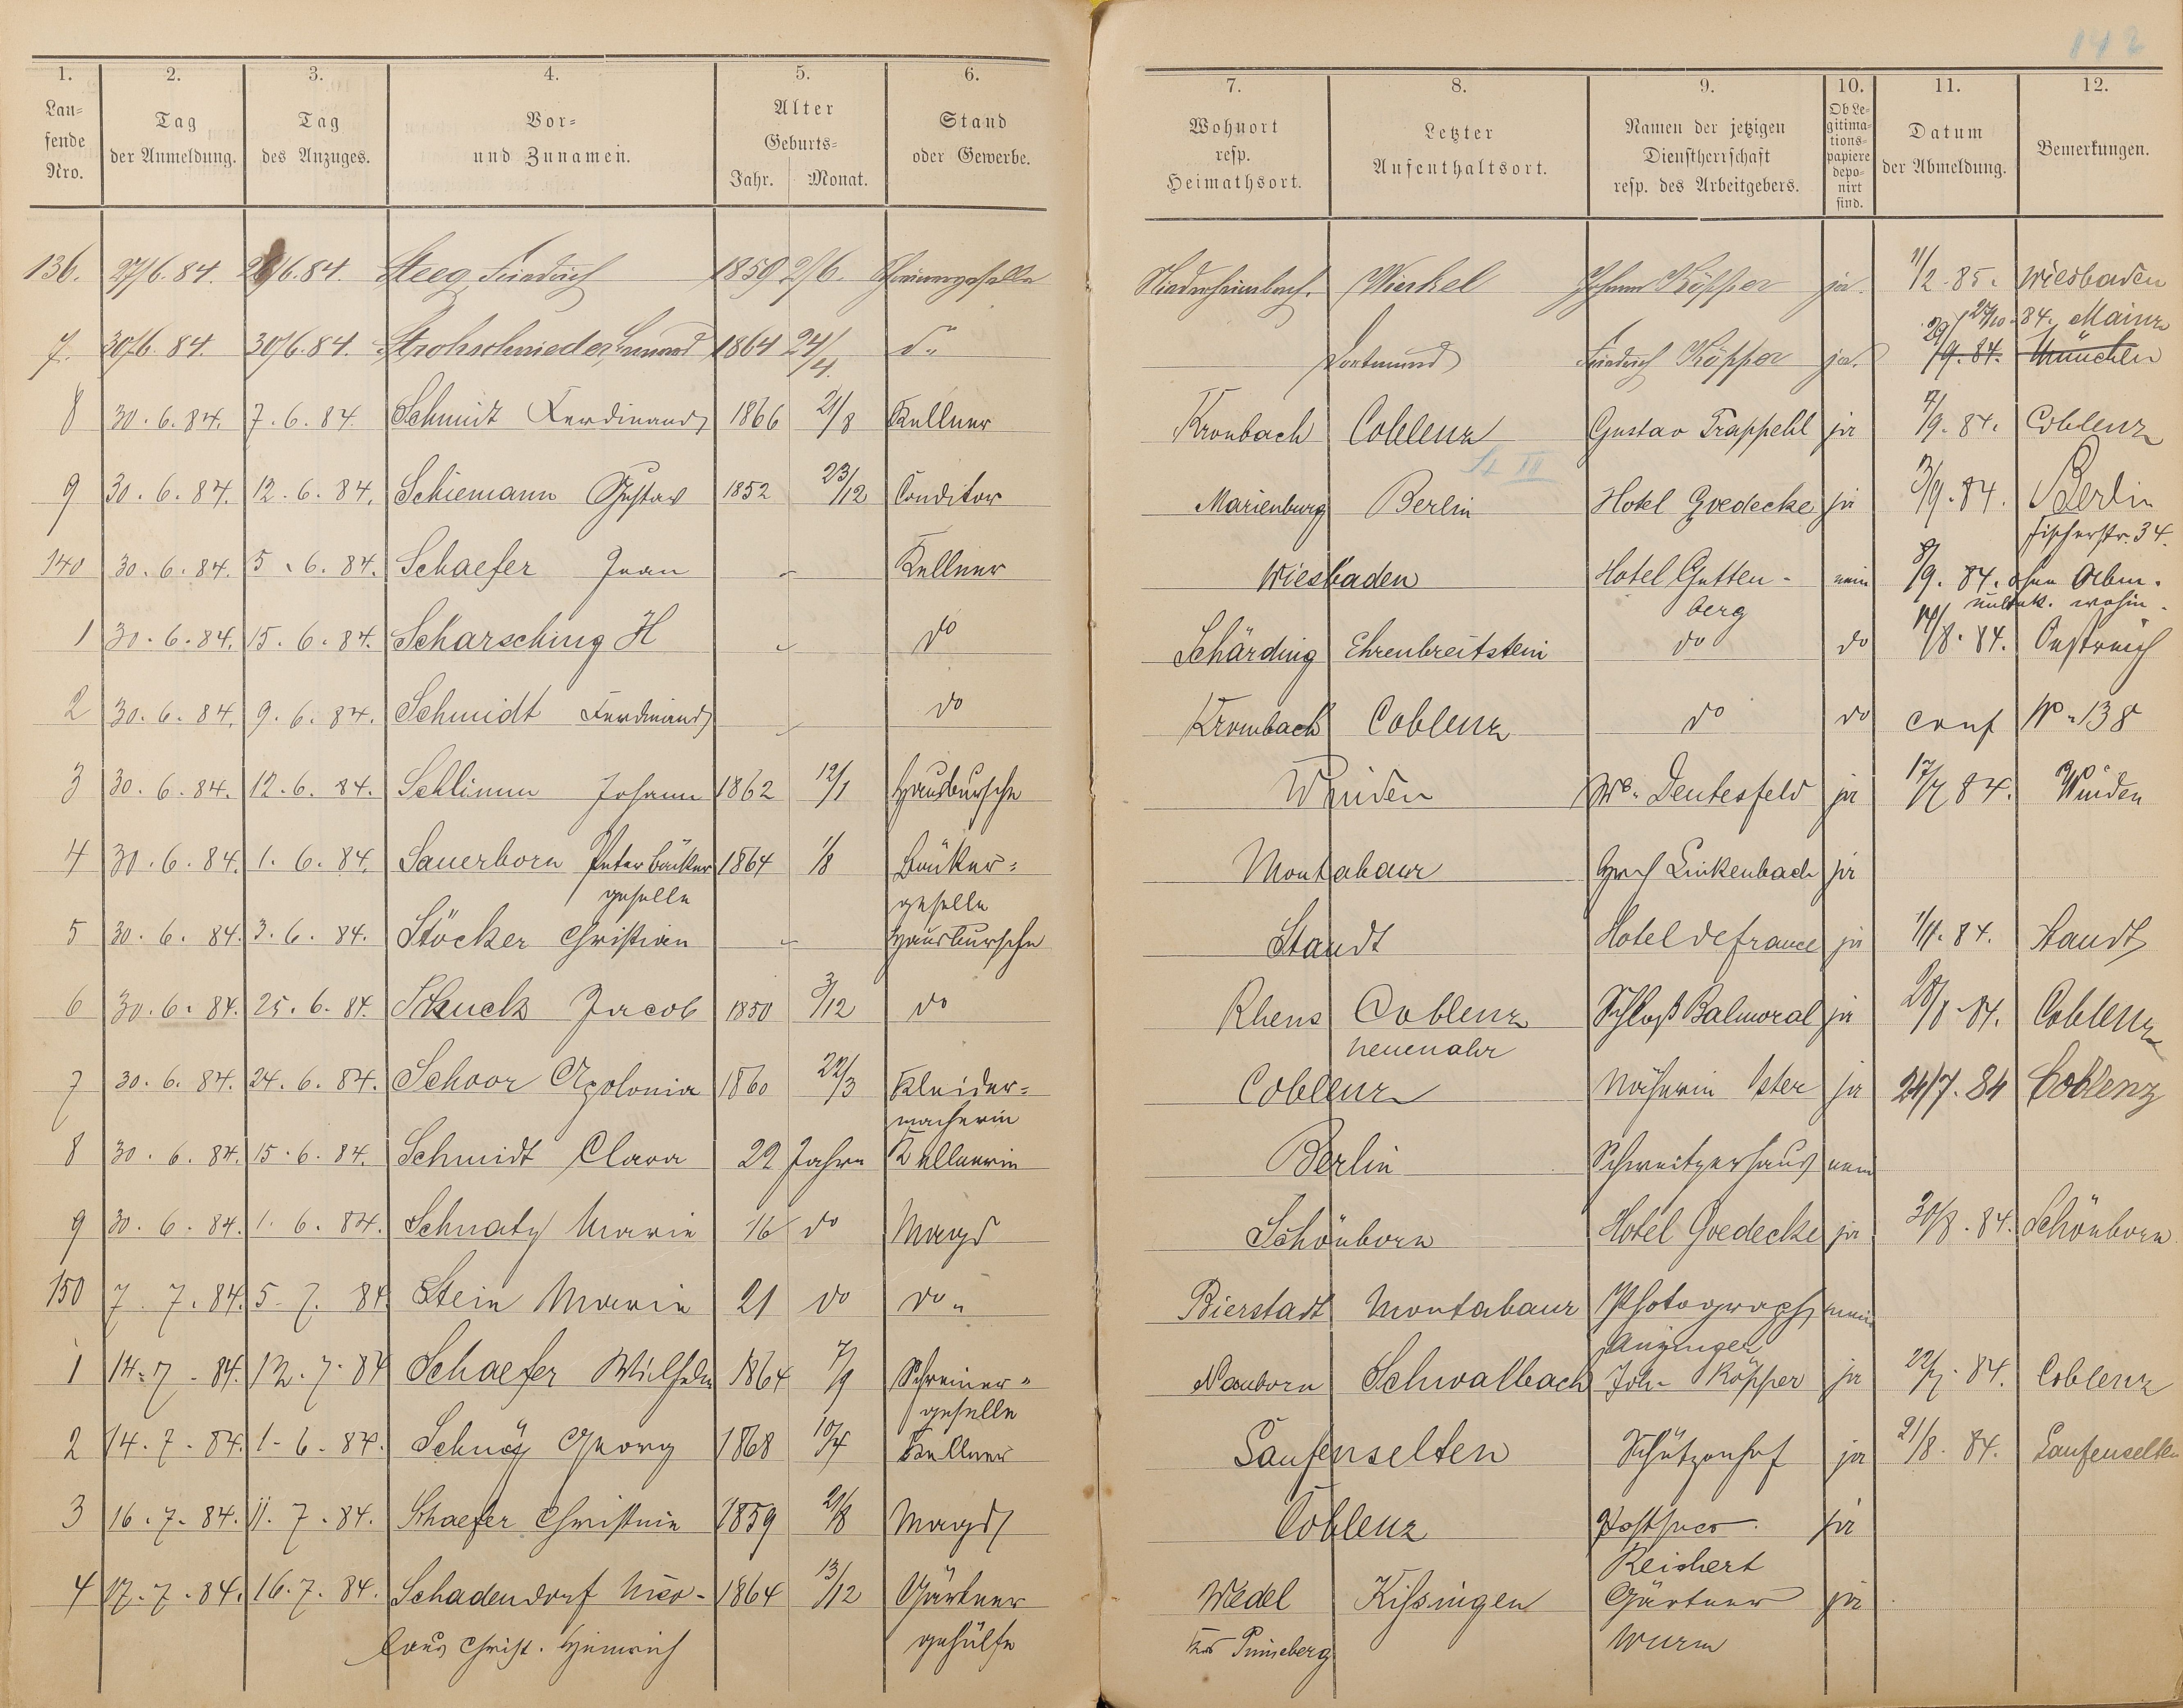 142
1. 2. 3. 4. 5. 6. 7. 8. 9. 10. 11. 12.
Lau=
fende
Nro.
Tag
der Anmeldung.
Tag
des Anzuges.
Vor=
und Zunamen.
Alter
Geburts=
Jahr. Monat.
Stand
oder Gewerbe.
Wohnort
resp.
Heimathsort.
Letzter
Aufenthaltsort.
Namen der jetzigen
Dienstherrschaft
resp. des Arbeitgebers.
Ob Le-
gitima-
tions-
papiere
depo-
nirt
sind.
Datum
der Abmeldung.
Bemerkungen.
136. 27/6. 84. 26/6. 84. Steeg, Friedrich 1859 2/6. Schreinergeselle Niederheimbach. Winkel Johann Köpper ja. 11/2. 85. Wiesbaden
27/10. 84. Mainz
7. 30/6. 84. 30/6. 84. Strohschnieder, 1864 24/4. do Dortmund Friedrich Köpper ja. 29/9. 84. München
8 30. 6. 84. 7. 6. 84. Schmidt Ferdinand 1866 21/8 Kellner Krombach Coblenz Gustav Trappehl ja 7/9. 84. Coblenz
St III
9 30. 6. 84. 12. 6. 84. Schiemann Gustav 1852 23/12 Conditor Marienburg Berlin Hotel Goedecke ja 3/9. 84. Berlin
Fischerstr. 34.
140 30. 6. 84. 5. 6. 84. Schaefer Jean - Kellner Wiesbaden Hotel Gutten- nein 8/9. 84. ohne Abm.
berg unbek. wohin.
1 30. 6. 84. 15. 6. 84. Scharsching H - do Schärding Ehrenbreitstein do do 14/8. 84. Oestreich
2 30. 6. 84. 9. 6. 84. Schmidt Ferdinand - do Krombach Coblenz do do conf No 138
3 30. 6. 84. 12. 6. 84. Schlimm Johann 1862 12/1 Hausbursche Winden Ww. Deutesfeld ja 17/7 84. Winden
4 30. 6. 84. 1. 6. 84. Sauerborn Peter Bäcker 1864 1/8 Bäcker= Montabaur Linkenbach ja
geselle geselle
5 30. 6. 84. 3. 6. 84. Stöcker Christian - Hausbursche Standt Hotel de france ja 1/11. 84. Standt
6 30. 6. 84. 25. 6. 84. Schuck Jacob 1850 3/12 do Rhens Coblenz Schloß Balmoral ja 28/8. 84. Coblenz
neuenahr
7 30. 6. 84. 24. 6. 84. Schoor Apolonia 1860 22/3 Kleider= Coblenz Näherin Ister ja 24/7. 84 Coblenz
macherin
8 30. 6. 84. 15. 6. 84. Schmidt Clara 22 Jahre Kellnerin Berlin Schweitzerhaus nein
9 30. 6. 84. 1. 6. 84. Schnatz Marie 16 do Magd Schönborn Hotel Goedecke ja 30/8. 84. Schönborn
150 7. 7. 84. 5. 7. 84. Stein Marie 21 do do Bierstadt Montabaur Photograph nein
1 14. 7. 84. 12. 7. 84 Schaefer Wilhelm 1864 7/9 Schreiner= Nauborn Schwalbach Joh. Köpper ja 22/7. 84. Coblenz
geselle
2 14. 7. 84. 1. 6. 84. Georg 1868 10/4 Kellner Laufenselten Schützenhof ja 21/8. 84. Laufenselten
3 16. 7. 84. 11. 7. 84. Schaefer Christine 1859 21/8 Magd Coblenz ja
Reichert
4 17. 7. 84. 16. 7. 84. Schadendorf Nico- 1864 13/12 Gärtner Wedel Kissingen Gärtner ja
laus Christ. Heinrich gehülfe Krs Pinneberg Wurm